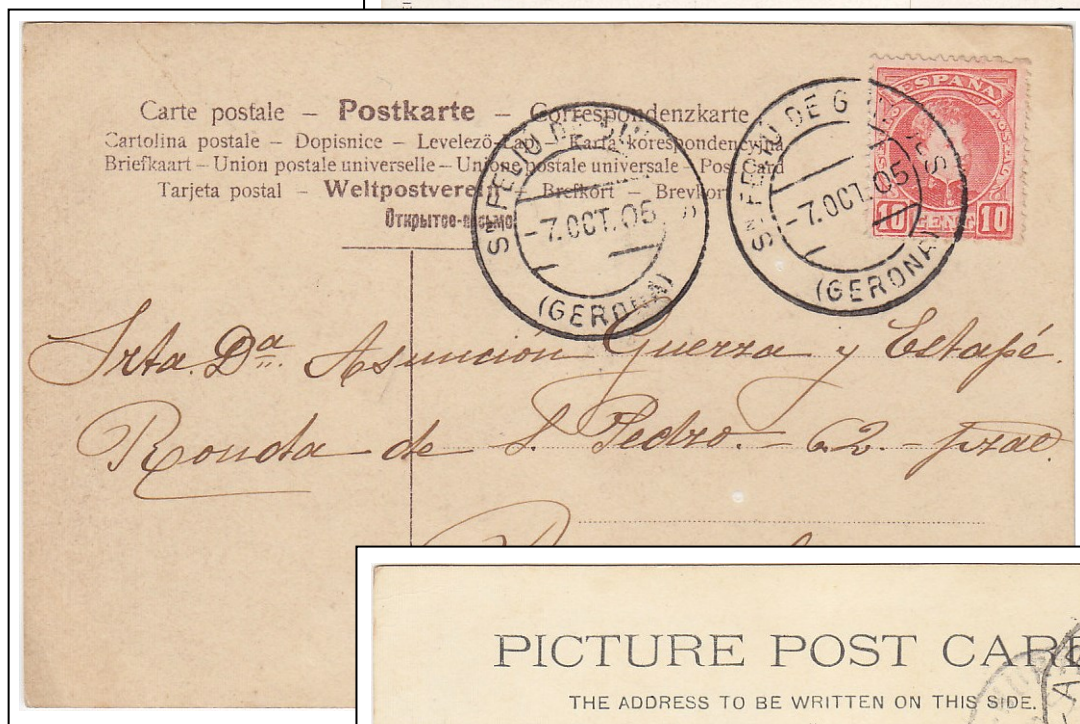 Carte postale – Postkarte – Correspondenzkarte
Cartolina postale – Dopisnice – Levelező-Lap – Karta korespondencyjna
Briefkaart – Union postale universelle – Unione postale universale – Post Card
Tarjeta postal – Weltpostverein – Brefkort – Brevkort
Открытое-письмо
ESPAÑA
10 CENT 10
SN FELIU DE GUIXOLS
-7.OCT.05
(GERONA)
SN FELIU DE GUIXOLS
-7.OCT.05
(GERONA)
Srta. Dª. Asunción Guerra y Estapé.
Ronda de S. Pedro. - 62 - pral.
PICTURE POST CARD
THE ADDRESS TO BE WRITTEN ON THIS SIDE.